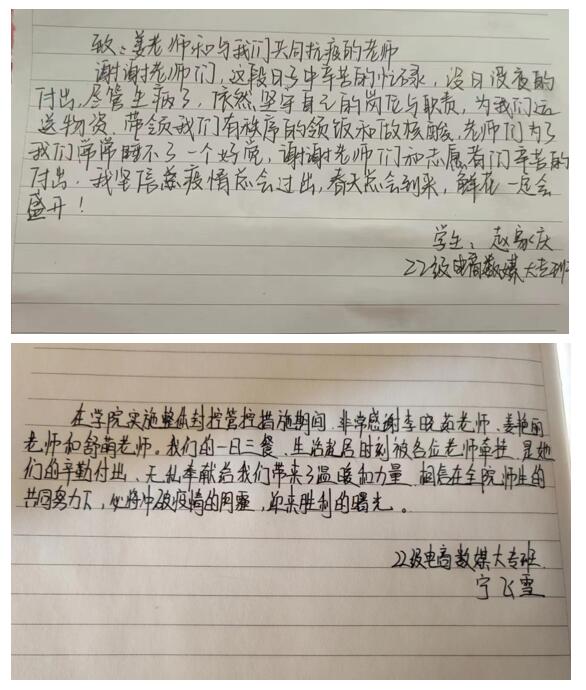 致：姜老师和与我们共同抗疫的老师
谢谢老师们，这段日子中辛苦的忙碌，没日没夜的
付出，尽管生病了，依然坚守自己的岗位与职责，为我们运
送物资，带领我们有秩序的领饭和做核酸，老师们为了
我们常常睡不了一个好觉，谢谢老师们和志愿者们辛苦的
付出，我坚信疫情总会过出，春天总会到来，鲜花一定会
盛开！
学生：赵家庆
22级电商数媒大专班
在学院实施整体封控管控措施期间，非常感谢李晓茹老师、姜艳丽
老师和舒萌老师。我们的一日三餐、生活起居时刻被各位老师牵挂，是她
们的辛勤付出、无私奉献给我们带来了温暖和力量，相信在全院师生的
共同努力下，必将冲破疫情的阴霾，迎来胜利的曙光。
22级电商数媒大专班
宁飞雪